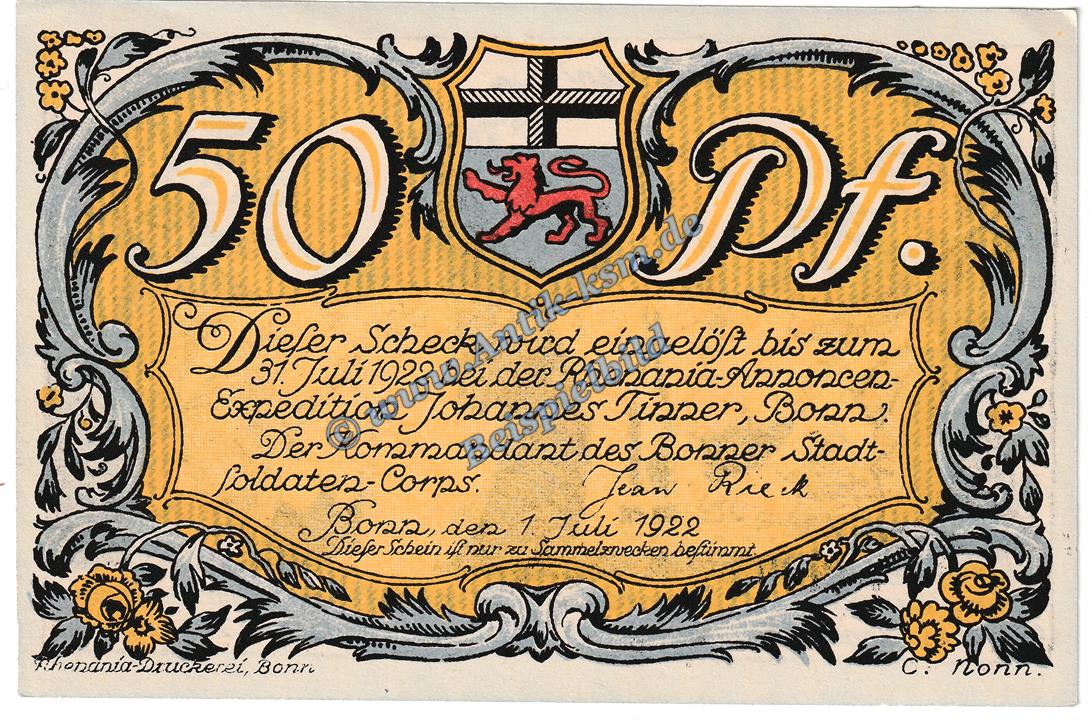 50 Pf.
Dieser Scheck wird eingelöst bis zum
31. Juli 1922 bei der Rhenania-Annoncen-
Expedition Johannes Tinner, Bonn.
Der Kommandant des Bonner Stadt-
soldaten-Corps. Jean Rieck
Bonn, den 1. Juli 1922
Dieser Schein ist nur zu Sammelzwecken bestimmt.
Rhenania-Druckerei, Bonn C. Nonn.
© www.Antik-ksm.de
Beispielbild